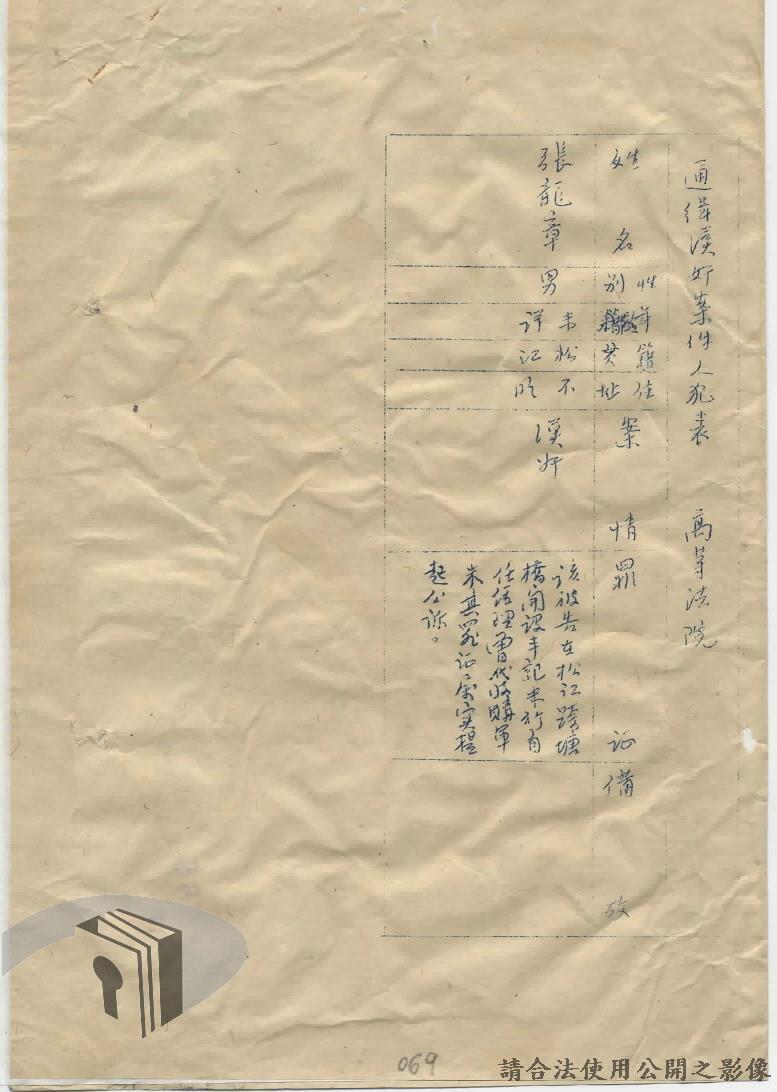 通緝漢奸案件人犯表　高等法院
姓名
性別
年齡
籍貫
住址
案情
罪証
備攷
張龍章
男
未詳
松江
不明
漢奸
該被告在松江跨塘
橋開設丰記米行自
任經理曾代收購軍
米其罪証屬实提
起公訴。
069
請合法使用公開之影像